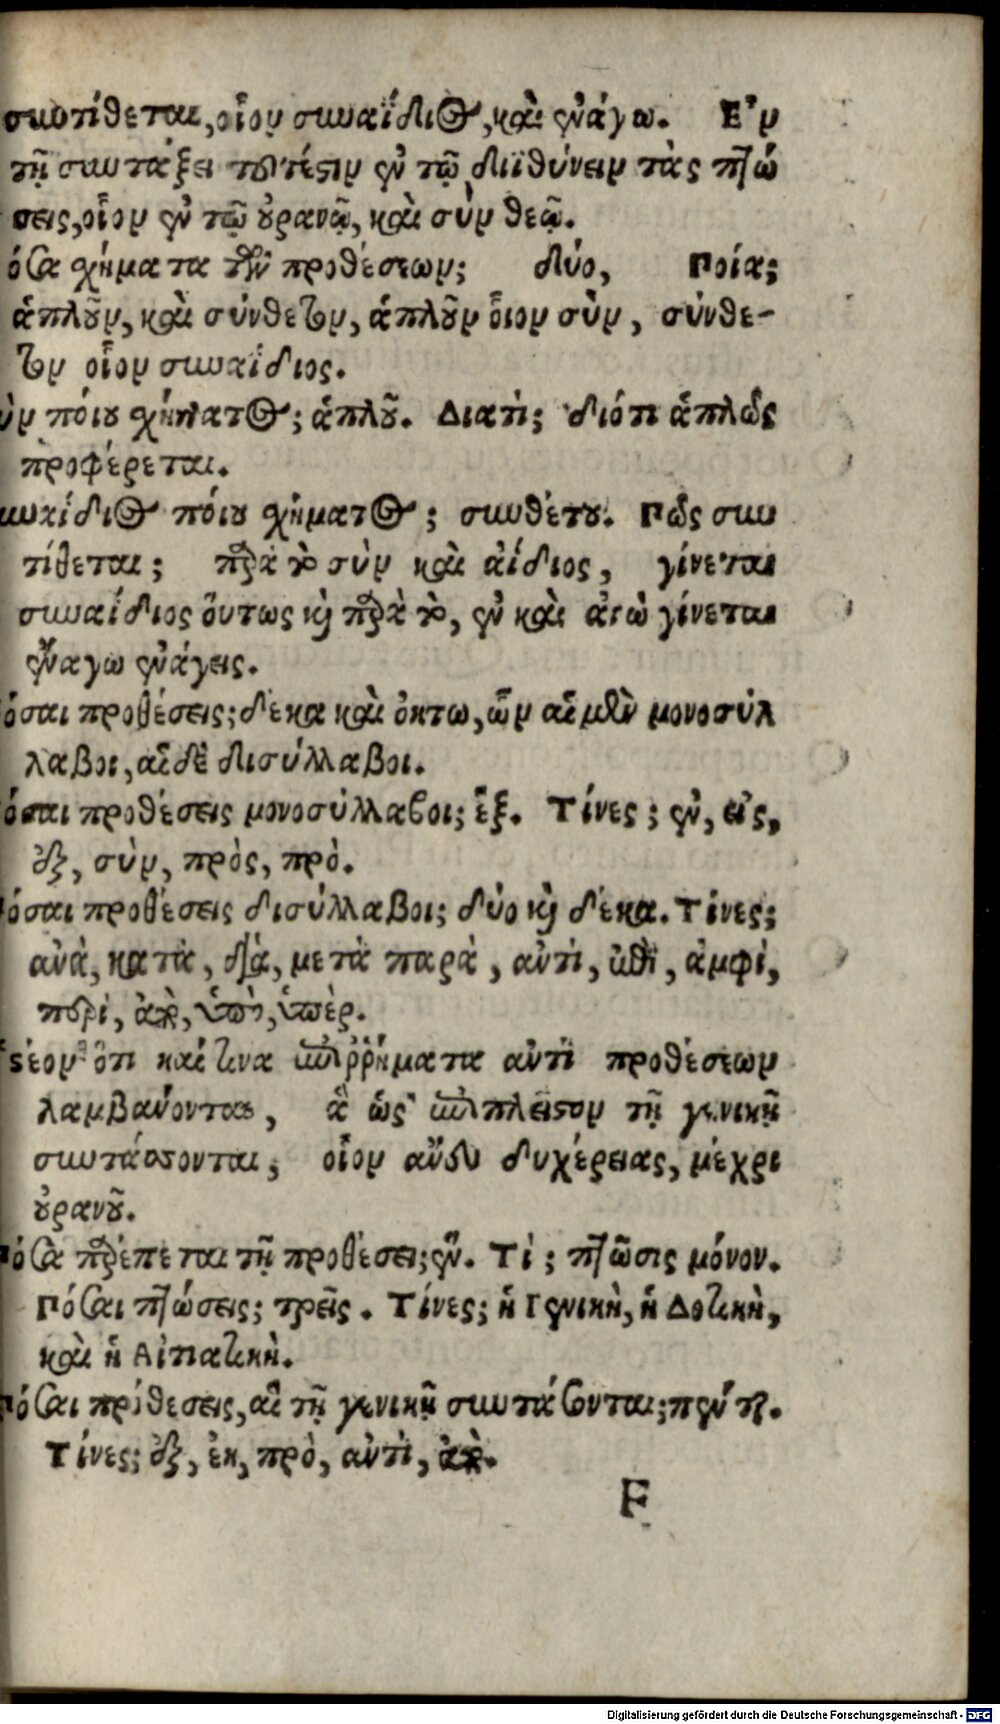 συντίθεται, οἷον συναΐδιος, καὶ ἐνάγω. Ἐν
τῇ συντάξει τουτέστιν ἐν τῷ διϊθύνειν τὰς πτώ
σεις, οἷον ἐν τῷ οὐρανῷ, καὶ σὺν θεῷ.
όσα χήματα τῶν προθέσεων; δύο, Ποία;
ἁπλοῦν, καὶ σύνθετον, ἁπλοῦν οἷον σὺν, σύνθε-
τον οἷον συναΐδιος.
ὺν πόιου χήματος; ἁπλοῦ. Διατί; διότι ἁπλῶς
προφέρεται.
συναίδιος πόιου χήματος; συνθέτου. Πῶς συν
τίθεται; παρὰ τὸ σὺν καὶ ἀίδιος, γίνεται
συναΐδιος οὕτως καὶ παρὰ τὸ, ἐν καὶ ἄγω γίνεται
ἔναγω ἐνάγεις.
όσαι προθέσεις; δέκα καὶ ὀκτω, ὧν αἱ μὲν μονοσύλ
λαβοι, αἱ δὲ δισύλλαβοι.
όσαι προθέσεις μονοσύλλαβοι; ἕξ. Τίνες; ἐν, εἰς,
ἐξ, σὺν, πρὸς, πρὸ.
όσαι προθέσεις δισύλλαβοι; δύο καὶ δέκα. Τίνες;
ἀνὰ, κατὰ, διὰ, μετὰ παρὰ, ἀντὶ, ἐπὶ, ἀμφὶ,
περὶ, ἀπὸ, ὑπὸ, ὑπὲρ.
στέον ὅτι καί τινα ἐπιῤῥήματα ἀντὶ προθέσεων
λαμβάνονται, ἃ ὡς ἐπιπλεῖστον τῇ γενικῇ
συντάσσονται, οἷον ἄνευ δυχέρειας, μέχρι
οὐρανοῦ.
πόσα παρέπεται τῇ προθέσει; ἕν. Τί; πτῶσις μόνον.
Πόσαι πτώσεις; τρεῖς. Τίνες; ἡ Γενικὴ, ἡ Δοτικὴ,
καὶ ἡ Αἰτιατικὴ.
πόσαι πρόθεσεις, αἳ τῇ γενικῇ συντάσσονται; πέντε.
Τίνες; ἐξ, ἐκ, πρὸ, ἀντὶ, ἀπὸ.
F
Digitalisierung gefördert durch die Deutsche Forschungsgemeinschaft - DFG